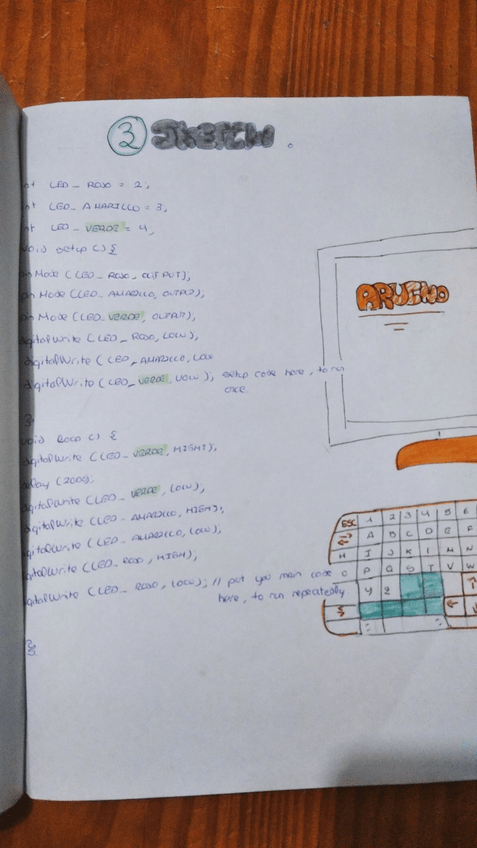 3 SKETCH.
nt LED_ROJO = 2;
nt LED_AMARILLO = 3,
nt LED_VERDE = 4,
void setup () {
inMode (LED_ROJO_OUTPUT),
inMode (LED_AMARILLO, OUTPUT),
inMode (LED_VERDE, OUTPUT),
digitalWrite (LED_ROJO, LOW),
digitalWrite (LED_AMARILLO, LOW
digitalWrite (LED_VERDE, LOW), setup code here, to run
once.
}
void LOOP () {
digitalWrite (LED_VERDE, HIGH),
delay (2000);
digitalWrite (LED_VERDE, LOW),
digitalWrite (LED_AMARILLO, HIGH),
digitalWrite (LED_AMARILLO, LOW),
igitalWrite (LED_ROJO, HIGH),
igitalWrite (LED_ROJO, LOW); // put you main code
here, to run repeatedly
}
ARUINO
ESC 1 2 3 4 5 6
A B C D E F
H I J K L M N
O P Q S T V W
Y Z
$